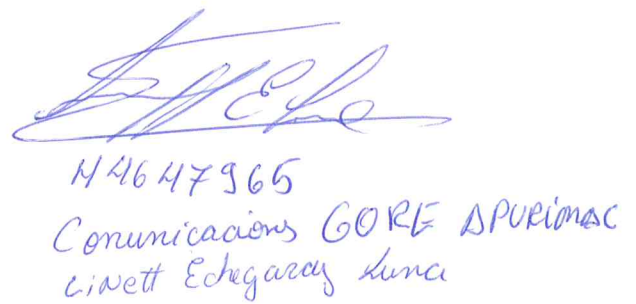 44647965
Comunicacions GORE APURIMAC
LiNett Echegaray Luna